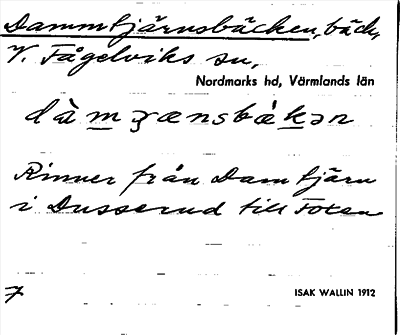 Dammtjärnsbäcken, bäck,
V. Fågelviks sn,
Nordmarks hd, Värmlands län
dàmʒænsbä̀kən
Rinner från Damtjärn
i Dusserud till Foxen
7
ISAK WALLIN 1912